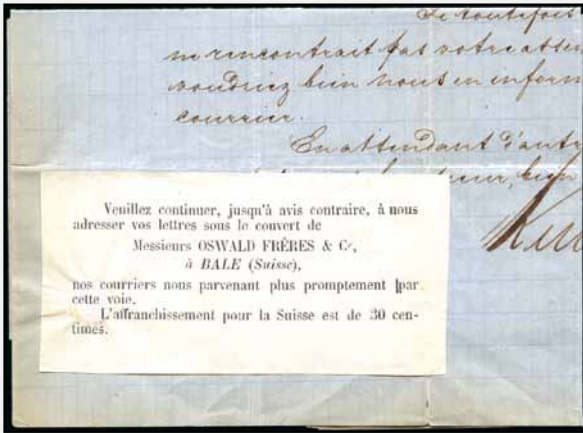 Si toutefois
ne rencontrait pas votre
voudriez bien nous en inform
courrier.
En attendant d'autr
Veuillez continuer, jusqu'à avis contraire, à nous
adresser vos lettres sous le couvert de
Messieurs OSWALD FRÈRES & Cᵉ,
à BALE (Suisse),
nos courriers nous parvenant plus promptement par
cette voie.
L'affranchissement pour la Suisse est de 30 cen-
times.